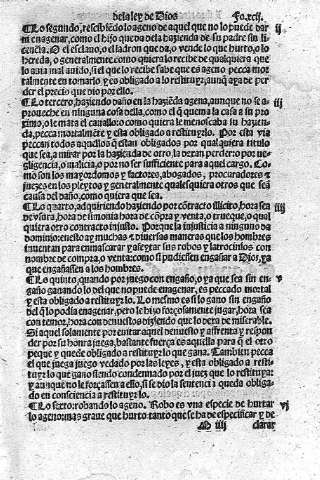 de la ley de Dios   Fo.xcij.
¶ Lo segundo, rescibiẽdo lo ageno de aquel que no lo puede dar ij
ni enagenar, como el hijo que da dela hazienda de su padre sin li-
cẽcia. O el esclauo, o el ladron que da, o vende lo que hurto, o lo
hereda, o generalmente como quiera lo recibe de qualquiera que
lo auia mal auido, si el que lo recibe sabe que es ageno pecca mor
talmente en tomarlo y es obligado a lo restituyr, aunq̃ aya de per
der el precio que dio por ello.
¶ Lo tercero, haziendo daño en la haziẽda agena, aunque no se a- iij
proueche en ninguna cosa della, como el q̃ quema la casa a su pro
ximo, o le mata el cauallo: o como quiera le menoscaba su hazien
da, pecca mortalmẽte y esta obligado a restituyrlo. Por esta via
peccan todos aquellos q̃ estan obligados por qualquiera titulo
que sea, a mirar por la haziẽda de otro, la dexan perder o por ne-
gligencia, o malicia, o por no ser sufficiente para aquel cargo. Co
mo son los mayordomos y factores, abogados, procuradores e
juezes en los pleytos y generalmente qualesquiera otros que seã
causa del daño, como quiera que sea.
¶ Lo quarto, adquiriendo haziendo por cõtracto illicito, hora sea iiij
de vsura, hora de simonia hora de cõpra y venta, o trueque, o qual
quiera otro contracto injusto. Porque la injusticia a ninguno da
dominio: enesto ay muchas e diuersas maneras que los hombres
inuentan para enmascarar y afeytar sus robos y latrocinios con
nombre de compra, o venta: como si pudiessen engañar a Dios, ya
que engañassen a los hombres.
¶ Lo quinto, quando por juego con engaño, o ya que sea sin en- v
gaño ganando lo del que no puede enagenar, es peccado mortal
y esta obligado a restituyrlo. Lo mesmo es si lo gano sin engaño
del q̃ lo podia enagenar, pero le hizo forçosamente jugar, hora sea
con temor, hora con denuestos diziendo que lo dexa de miserable.
Si aquel solamente por euitar aquel denuesto y affrenta y respon
der por su honra juega, bastante fuerça es aquella para q̃ el otro
peque y quede obligado a restituyr lo que gana. Tambien pecca
el que juega juego vedado por las leyes, y esta obligado a resti-
tuyr lo que gano siendo condemnado por el juez que lo restituya:
y aunque no le forçassen a ello, si se dio la sentencia queda obliga-
do en consciencia a restituyrlo.
¶ Lo sexto: robando lo ageno. Robo es vna especie de hurtar vj
lo ageno: mas graue que hurto: tanto que se ha de especificar y de
M iiij   clarar